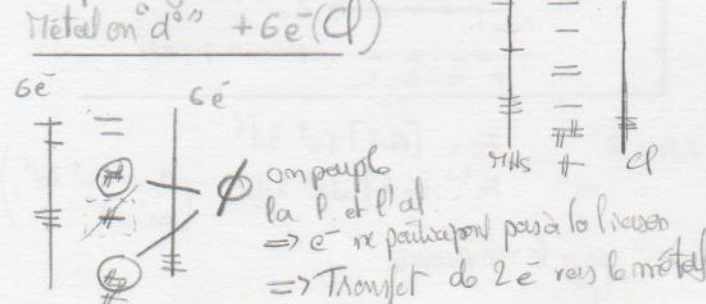 Métal en "d°" + 6e⁻ (Cl)
6e⁻ 6e⁻
MHS Cl
∅ on peuple
la l. et l'al
=> e⁻ ne participent pas à la liaison
=> Transfert de 2e⁻ vers le métal